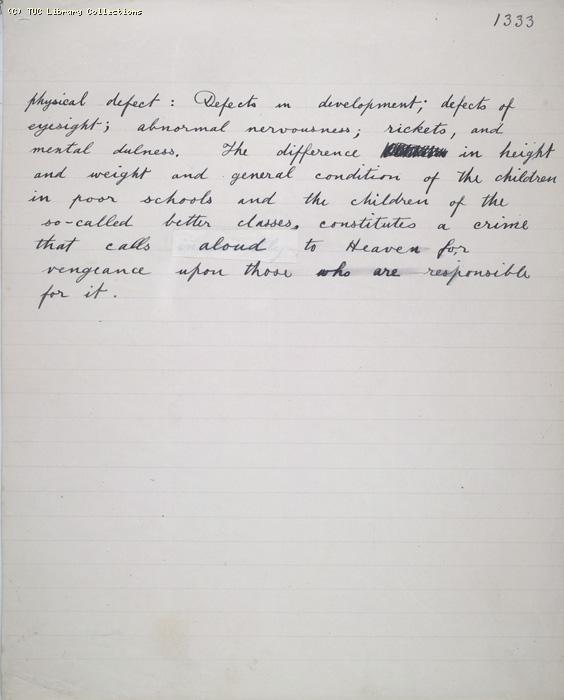 (C) TUC Library Collections
1333
physical defect : Defects in development; defects of
eyesight; abnormal nervousness; rickets, and
mental dulness. The difference in height
and weight and general condition of the children
in poor schools and the children of the
so-called better classes, constitutes a crime
that calls aloud to Heaven for
vengeance upon those who are responsible
for it.